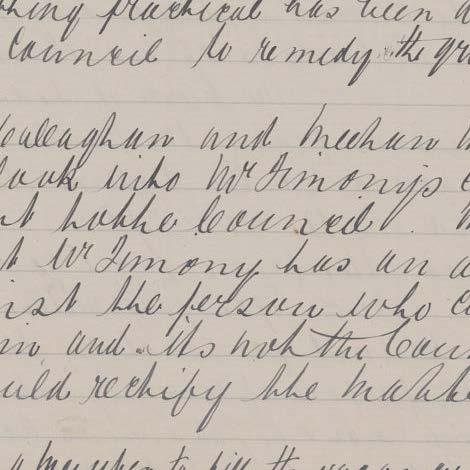 thing practical has been
Council to remedy the
Callaghan and Meehan
look into Mr Timony's
not to the Council.
Mr Timony has an
the person who
and its not the Coun
uld rectify the matte
to fill the